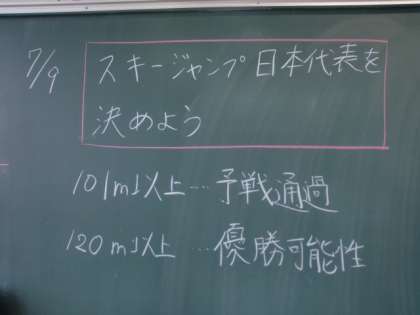 7/9
スキージャンプ日本代表を
決めよう
101m以上…予戦通過
120m以上…優勝可能性